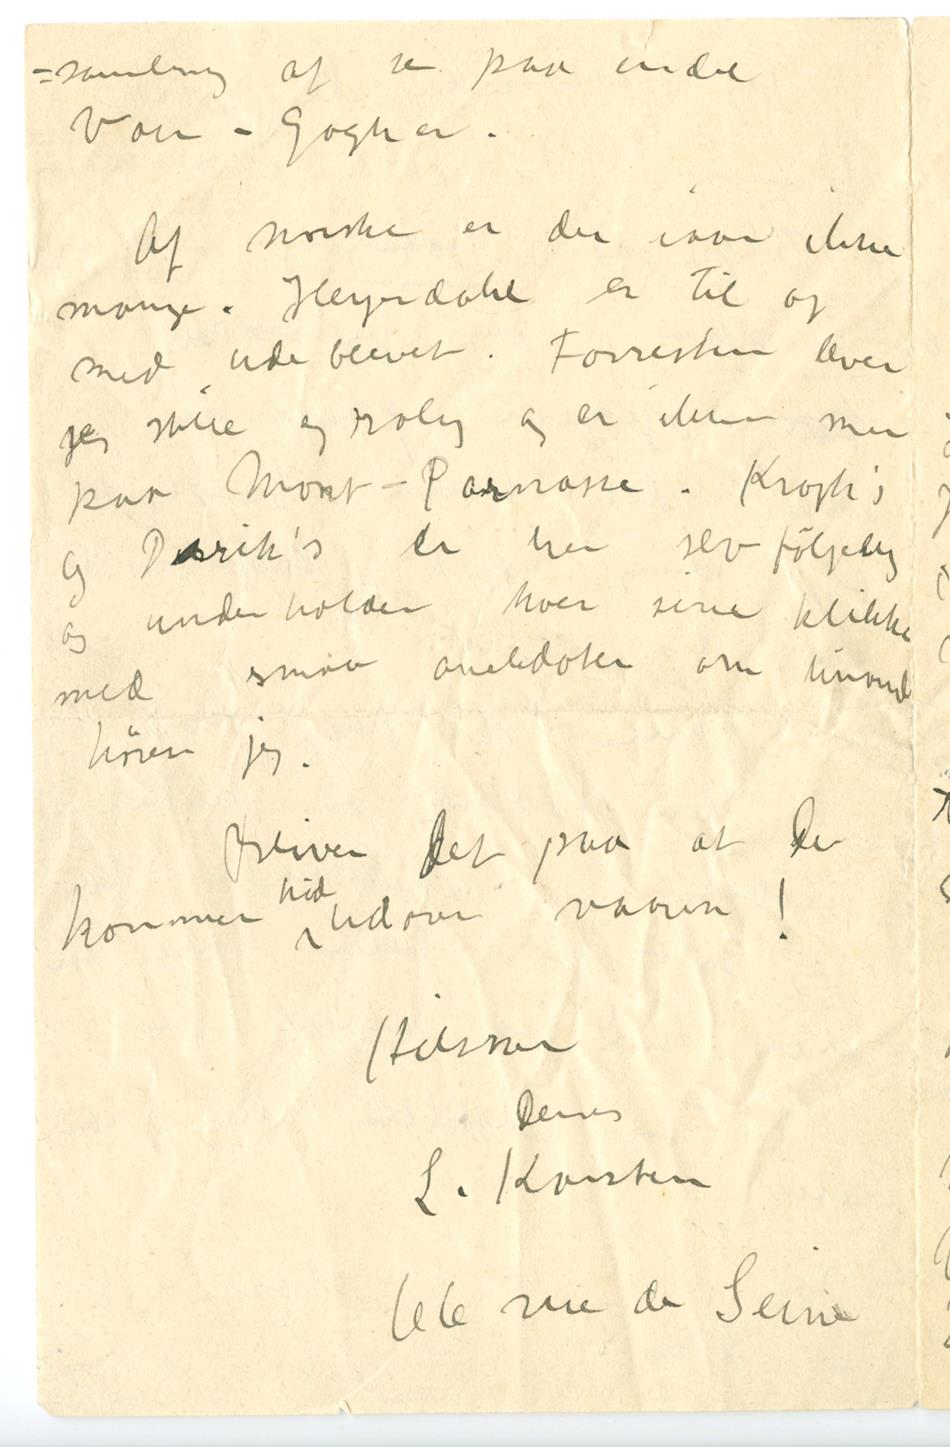 =samling at se paa endel
Van-Gogher.
Af norske er der iaar ikke
mange. Heyerdahl er til og
med udeblevet. Forresten lever
jeg stille og rolig og er ikke mer
paa Mont-Parnasse. Krogh's
og Diriks's er her selvfølgelig
og underholder hver sine klikke
med smaa anekdoter om hinand
hører jeg.
Driver det paa at De
kommer hid udover vaaren!
Hilsener
Deres
L. Karsten
66 rue de Seine